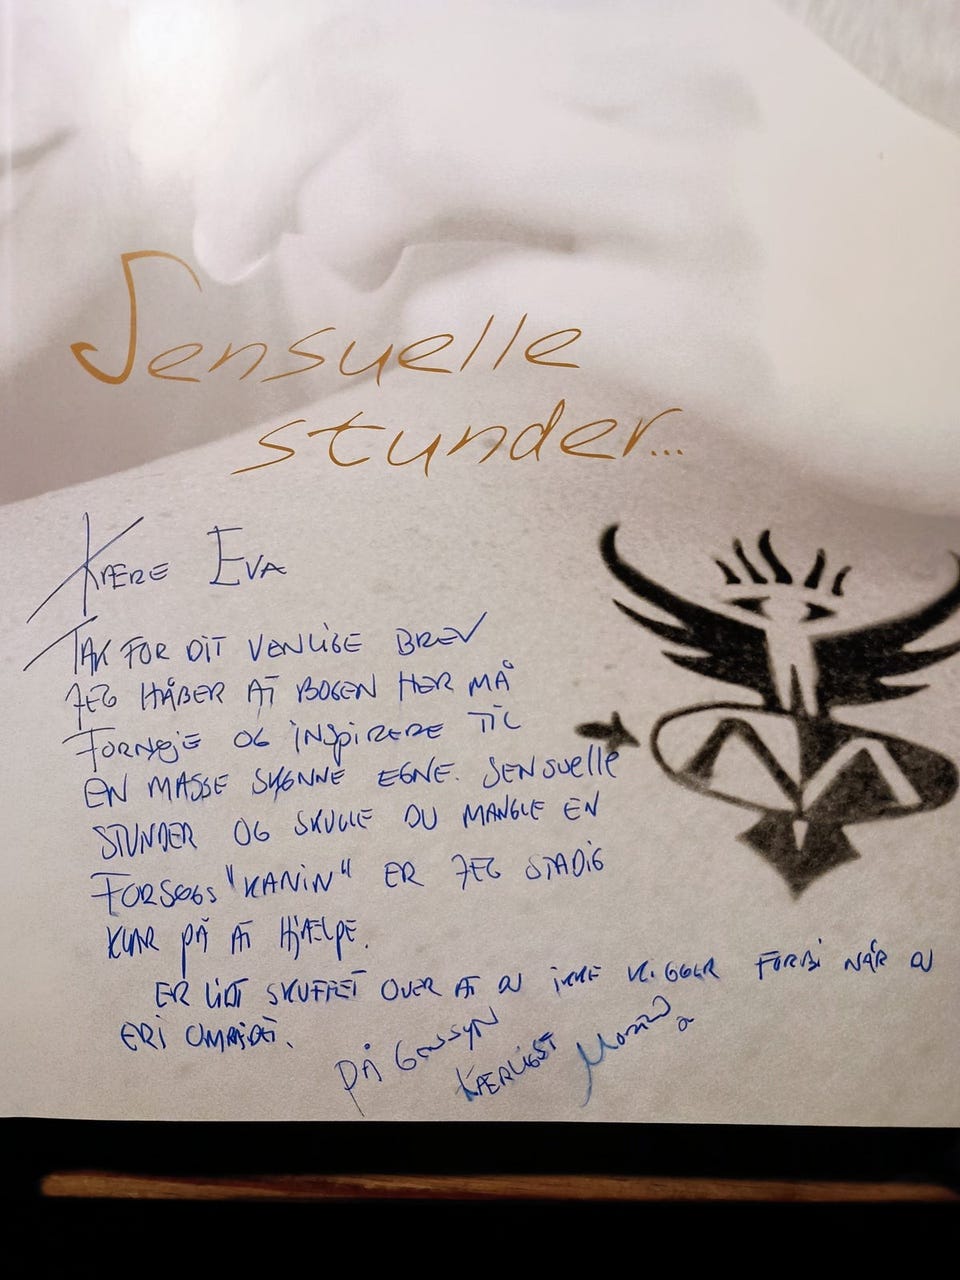 Sensuelle
stunder...
KÆRE EVA
TAK FOR DIT VENLIGE BREV
JEG HÅBER AT BOGEN HER MÅ
FORNØJE OG INSPIRERE TIL
EN MASSE SKØNNE EGNE. SENSUELLE
STUNDER OG SKULLE DU MANGLE EN
FORSØGS "KANIN" ER JEG STADIG
KLAR PÅ AT HJÆLPE.
ER LIDT SKUFFET OVER AT DU IKKE KIGGER FORBI NÅR DU
ER I OMRÅDET.
PÅ GENSYN
KÆRLIGST